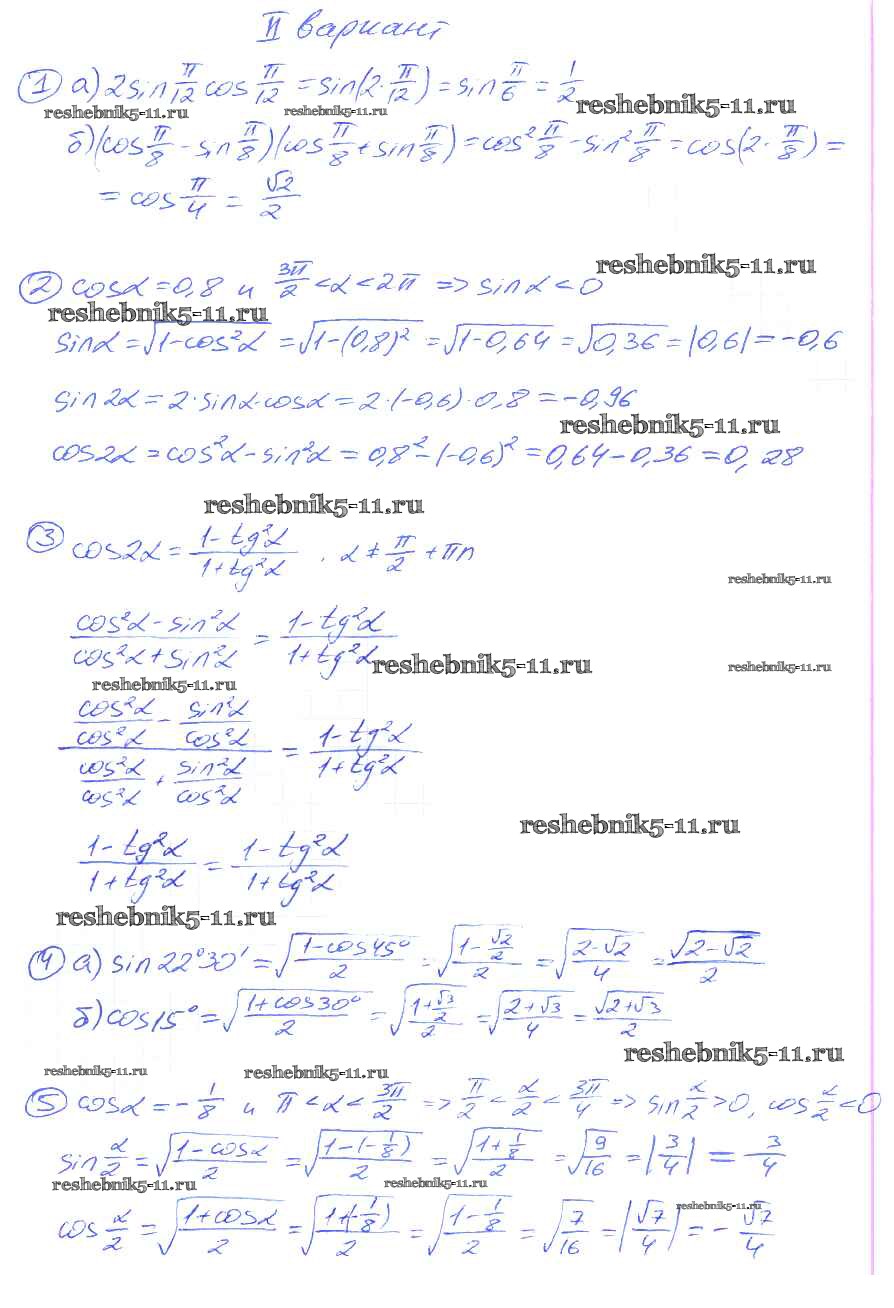 II вариант
① а) 2 sin π/12 cos π/12 = sin(2·π/12) = sin π/6 = 1/2
reshebnik5-11.ru reshebnik5-11.ru reshebnik5-11.ru
б) (cos π/8 - sin π/8)(cos π/8 + sin π/8) = cos² π/8 - sin² π/8 = cos(2·π/8) =
= cos π/4 = √2/2
reshebnik5-11.ru
② cosα = 0,8 и 3π/2 < α < 2π => sinα < 0
reshebnik5-11.ru
sinα = √(1-cos²α) = √(1-(0,8)²) = √(1-0,64) = √0,36 = |0,6| = -0,6
sin2α = 2·sinα·cosα = 2·(-0,6)·0,8 = -0,96
reshebnik5-11.ru
cos2α = cos²α - sin²α = 0,8² - (-0,6)² = 0,64 - 0,36 = 0,28
reshebnik5-11.ru
③ cos2α = (1-tg²α)/(1+tg²α) . α ≠ π/2 + πn
reshebnik5-11.ru
(cos²α - sin²α)/(cos²α + sin²α) = (1-tg²α)/(1+tg²α)
reshebnik5-11.ru reshebnik5-11.ru
reshebnik5-11.ru
(cos²α/cos²α - sin²α/cos²α)/(cos²α/cos²α + sin²α/cos²α) = (1-tg²α)/(1+tg²α)
reshebnik5-11.ru
(1-tg²α)/(1+tg²α) = (1-tg²α)/(1+tg²α)
reshebnik5-11.ru
④ а) sin 22°30' = √((1-cos45°)/2) = √((1-√2/2)/2) = √((2-√2)/4) = √(2-√2)/2
б) cos15° = √((1+cos30°)/2) = √((1+√3/2)/2) = √((2+√3)/4) = √(2+√3)/2
reshebnik5-11.ru
reshebnik5-11.ru reshebnik5-11.ru
⑤ cosα = -1/8 и π < α < 3π/2 => π/2 < α/2 < 3π/4 => sin α/2 > 0, cos α/2 < 0
sin α/2 = √((1-cosα)/2) = √((1-(-1/8))/2) = √((1+1/8)/2) = √(9/16) = |3/4| = 3/4
reshebnik5-11.ru reshebnik5-11.ru
reshebnik5-11.ru
cos α/2 = √((1+cosα)/2) = √((1+(-1/8))/2) = √((1-1/8)/2) = √(7/16) = |√7/4| = -√7/4